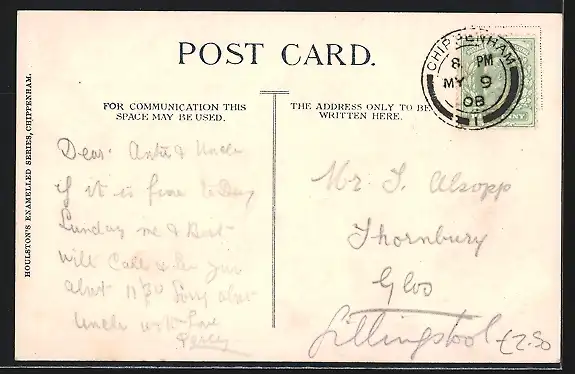 POST CARD.
CHIPPENHAM
8 PM
MY 9
08
FOR COMMUNICATION THIS
SPACE MAY BE USED.
THE ADDRESS ONLY TO BE
WRITTEN HERE.
HOULSTON'S ENAMELLED SERIES, CHIPPENHAM.
Dear Antie & Uncle
if it is fine to Day
Sunday me & Bert
will Call & see you
about 11 30 Sorry about
Uncle with Love
Percy
Mr. Alsopp
Thornbury
Glos
£2.50